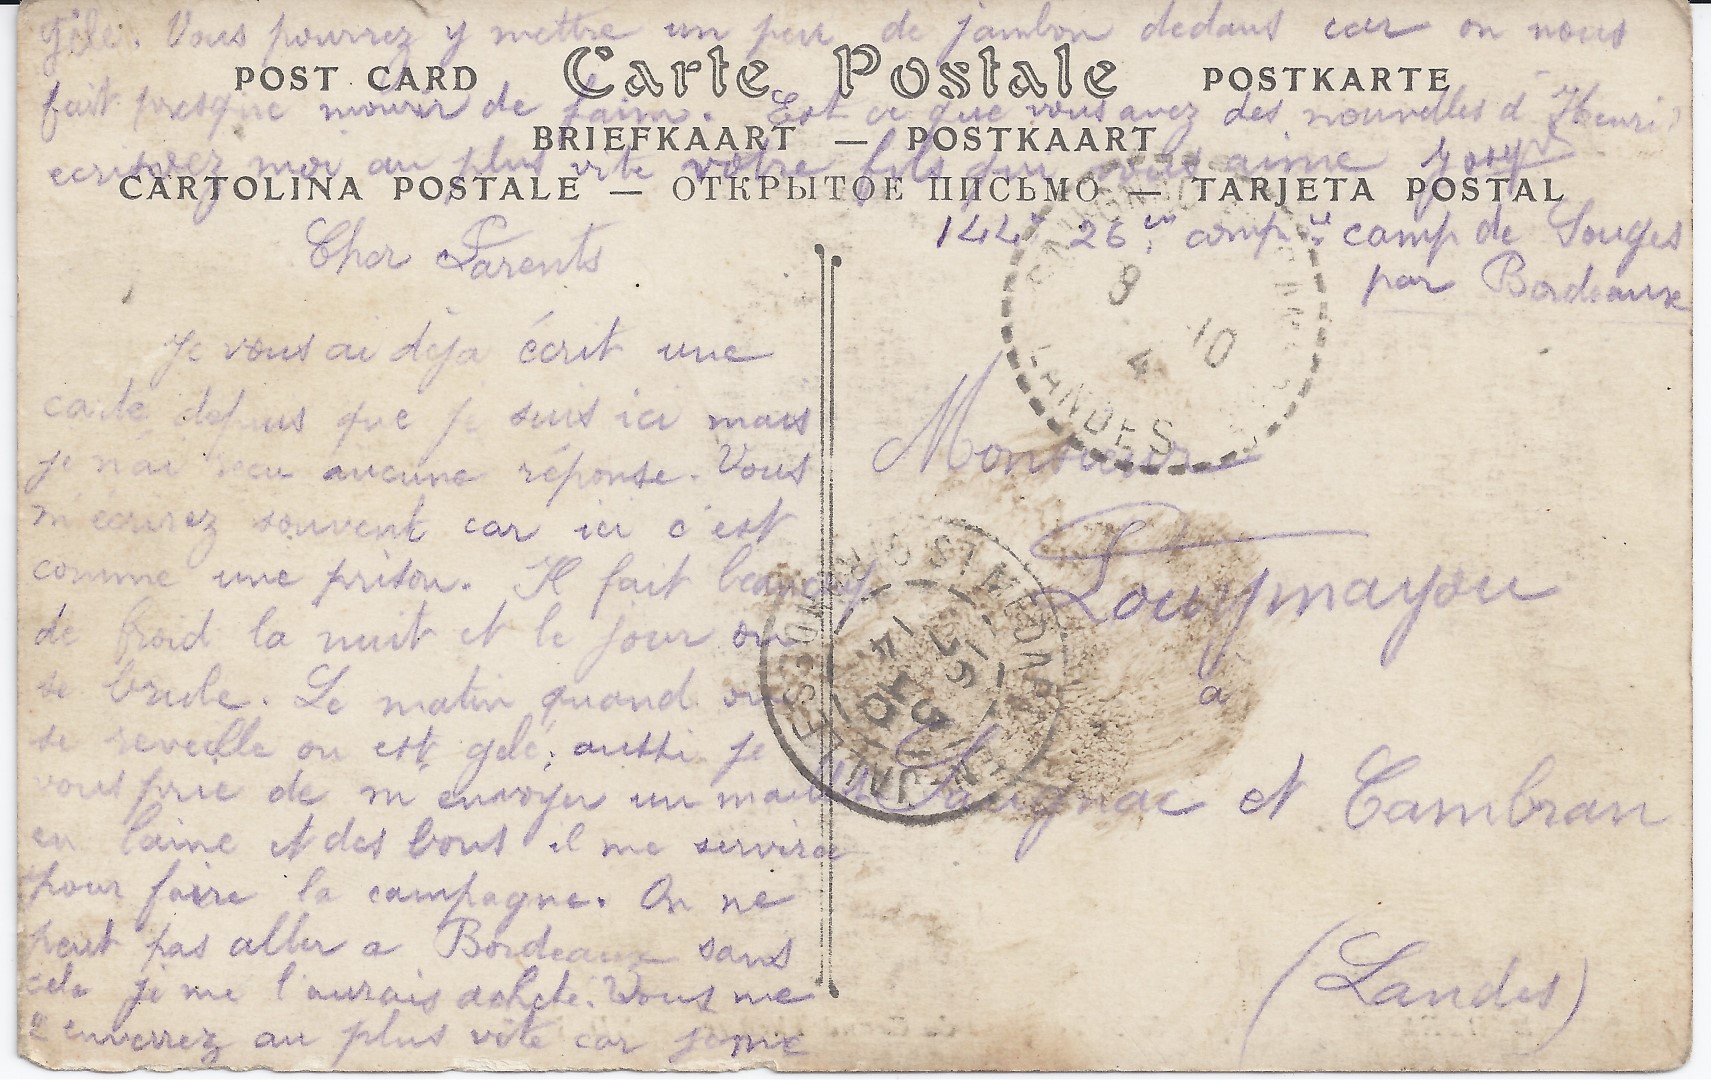 gèle. Vous pourrez y mettre un peu de jambon dedans car on nous
POST CARD Carte Postale POSTKARTE
fait presque mourir de faim. Est ce que vous avez des nouvelles d'Henri?
BRIEFKAART — POSTKAART
ecrivez moi au plus vite votre fils qui vous aime
CARTOLINA POSTALE — ОТКРЫТОЕ ПИСЬМО — TARJETA POSTAL
144e 26em compie camp de Souges
par Bordeaux
Cher Parents
Je vous ai déja écrit une
carte depus que je suis ici mais
je n'ai recu aucune réponse. Vous
m'ecrirez souvent car ici c'est
comme une prison. Il fait beaucoup
de froid la nuit et le jour on
se brule. Le matin quand on
se reveille on est gelé; aussi je
vous prie de m'envoyer un maillot
en laine et des bous il me servira
pour faire la campagne. On ne
peut pas aller a Bordeaux sans
cela je me l'aurais acheté. Vous me
l'enverrez au plus vite car je me
8 10
4
LANDES
Monsieur
Lourymayou
à
Saugnac et Cambran
(Landes)
ST MEDARD
14